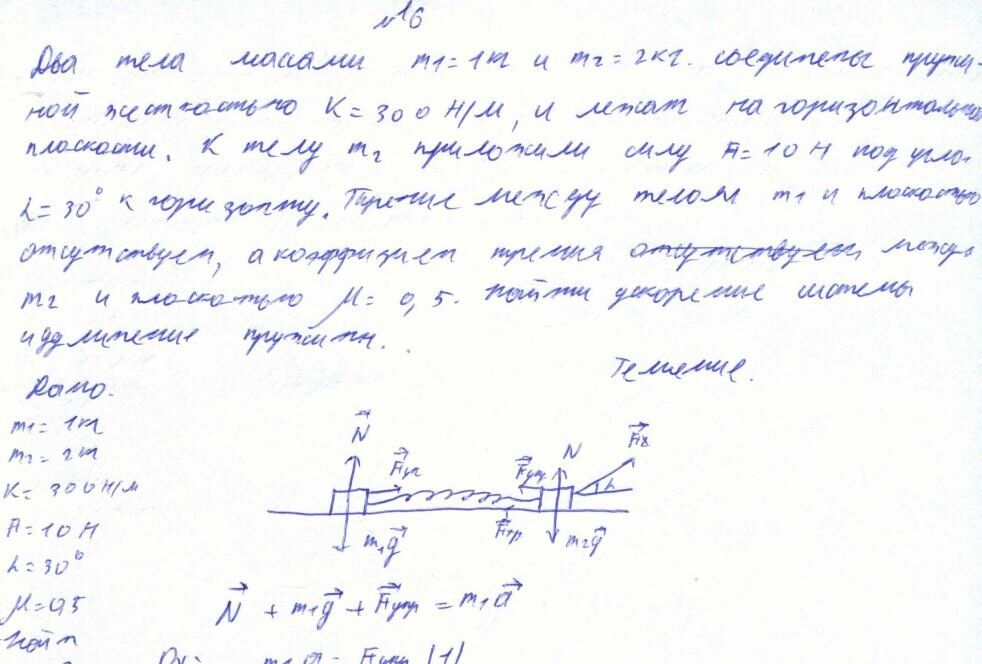 №16
Два тела масами m1=1кг и m2=2кг. соединены пружи-
ной жесткостью K=300Н/м, и лежат на горизонтальной
плоскасти. К телу m2 приложили силу F=10Н под угло.
α=30° к горизонту. Трение между телом m1 и плоскастью
отсутствует, а коэффициент трения отсутствует между
m2 и плоскатью μ=0,5. Найти ускорение системы
и удлинение пружины.
Решение.
Дано:
m1=1кг
m2=2кг
K=300Н/м
F=10Н
α=30°
μ=0,5
N
Fуп
Fупр
N
m1g
Fтр
m2g
N + m1g + Fупр = m1a
m1a = Fупр (1)